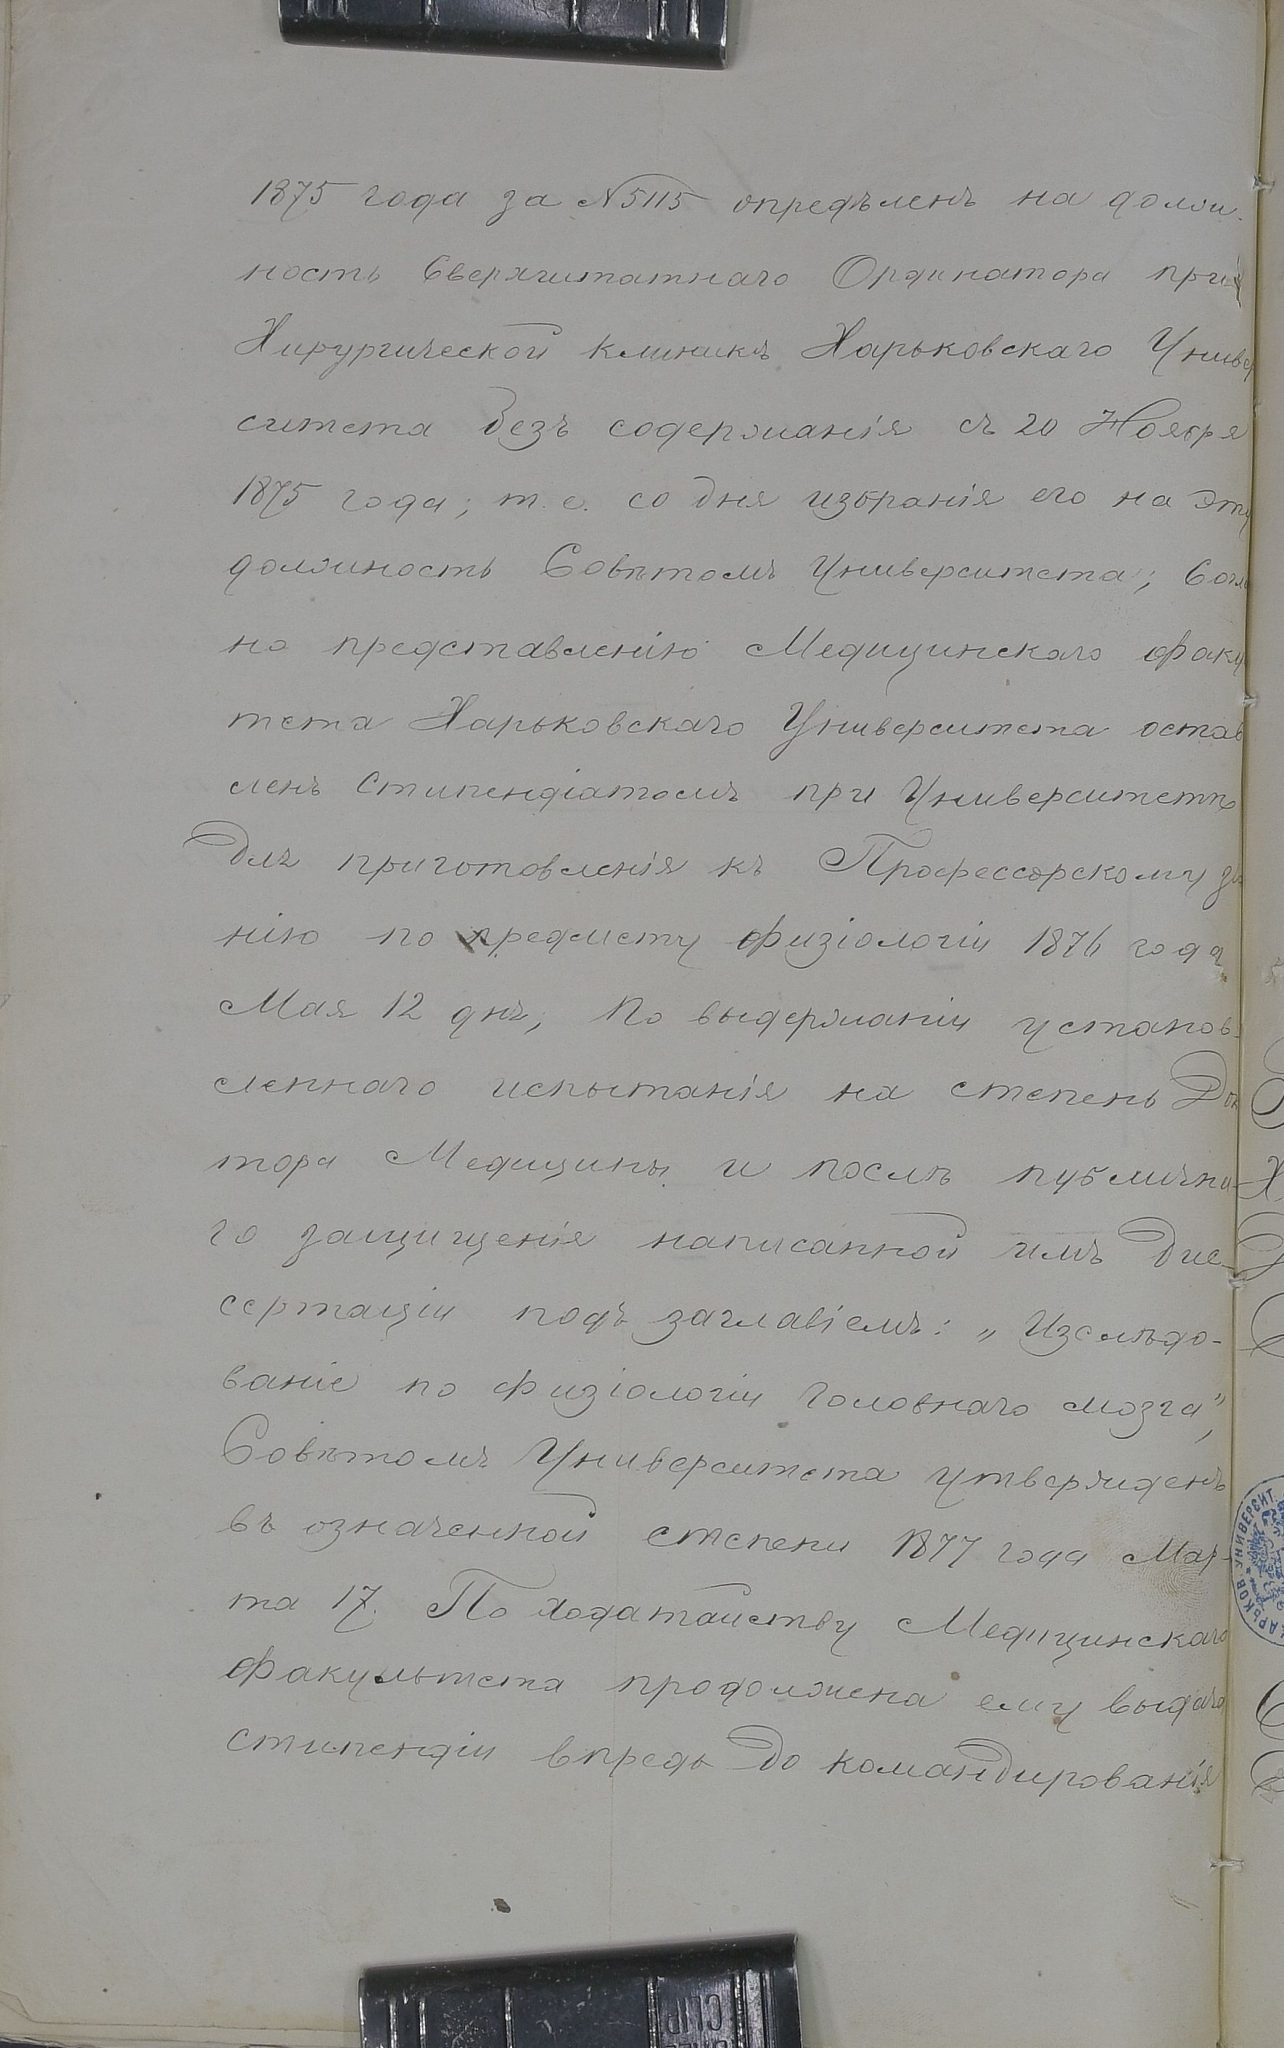 1875 года за №5115 опредѣленъ на долж-
ность Сверхштатнаго Ординатора при
Хирургической Клиникѣ Харьковскаго Универ
ситета безъ содержанія съ 20 Ноября
1875 года; т. е. со дня избранія его на эту
должность Совѣтомъ Университета; Согла
но представленію Медицинскаго факу
тета Харьковскаго Университета остав
ленъ Стипендіатомъ при Университетѣ
для приготовленія къ Профессорскому зв
нію по предмету физіологіи 1876 года
Мая 12 дня; По выдержаніи установ-
леннаго испытанія на степень Док
тора Медицины и послѣ публична-
го защищенія написанной имъ дис-
сертаціи подъ заглавіемъ: „Изслѣдо-
ваніе по физіологіи головнаго мозга",
Совѣтомъ Университета утвержденъ
въ означенной степени 1877 года Мар-
та 17. По ходатайству Медицинскаго
Факультета продолжена ему выдача
стипендіи впредь до командированія
АРЬКОВ. УНИВЕРСИТ.
CLIP